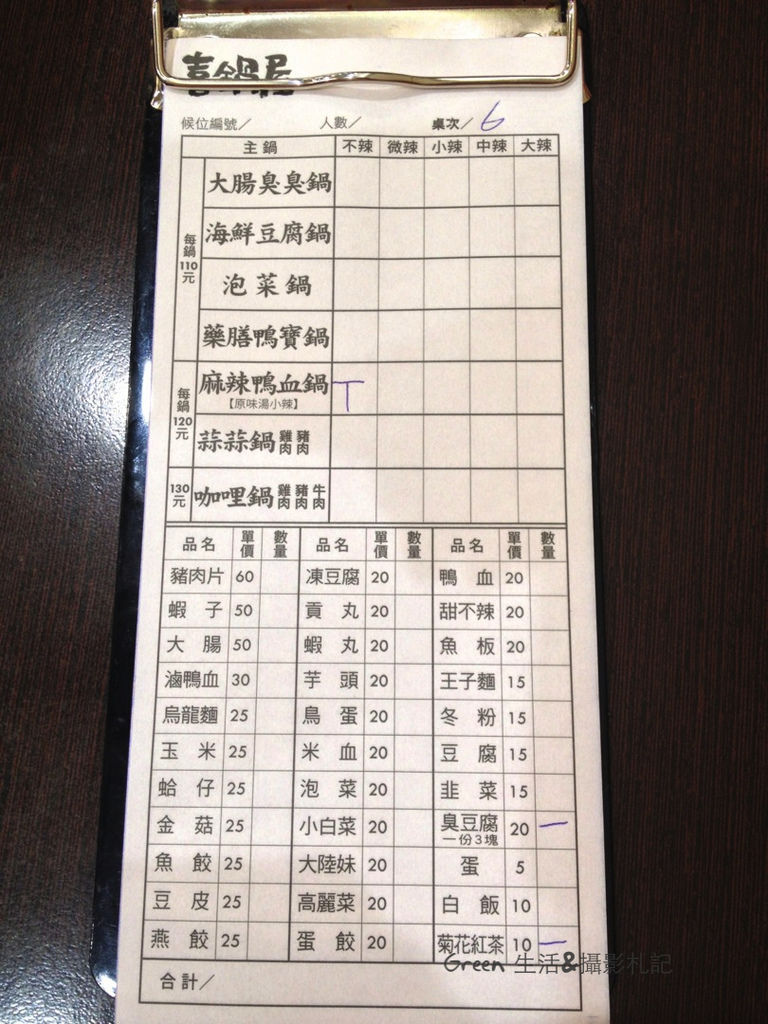 喜鍋屋
候位編號／ 人數／ 桌次／ 6
主鍋 不辣 微辣 小辣 中辣 大辣
每鍋110元
大腸臭臭鍋
海鮮豆腐鍋
泡菜鍋
藥膳鴨寶鍋
每鍋120元
麻辣鴨血鍋 T
【原味湯小辣】
蒜蒜鍋 雞肉 豬肉
130元
咖哩鍋 雞肉 豬肉 牛肉
品名 單價 數量 品名 單價 數量 品名 單價 數量
豬肉片 60 凍豆腐 20 鴨血 20
蝦子 50 貢丸 20 甜不辣 20
大腸 50 蝦丸 20 魚板 20
滷鴨血 30 芋頭 20 王子麵 15
烏龍麵 25 鳥蛋 20 冬粉 15
玉米 25 米血 20 豆腐 15
蛤仔 25 泡菜 20 韭菜 15
金菇 25 小白菜 20 臭豆腐 20 一
一份3塊
魚餃 25 大陸妹 20 蛋 5
豆皮 25 高麗菜 20 白飯 10
燕餃 25 蛋餃 20 菊花紅茶 10 一
合計／
Green 生活&攝影札記